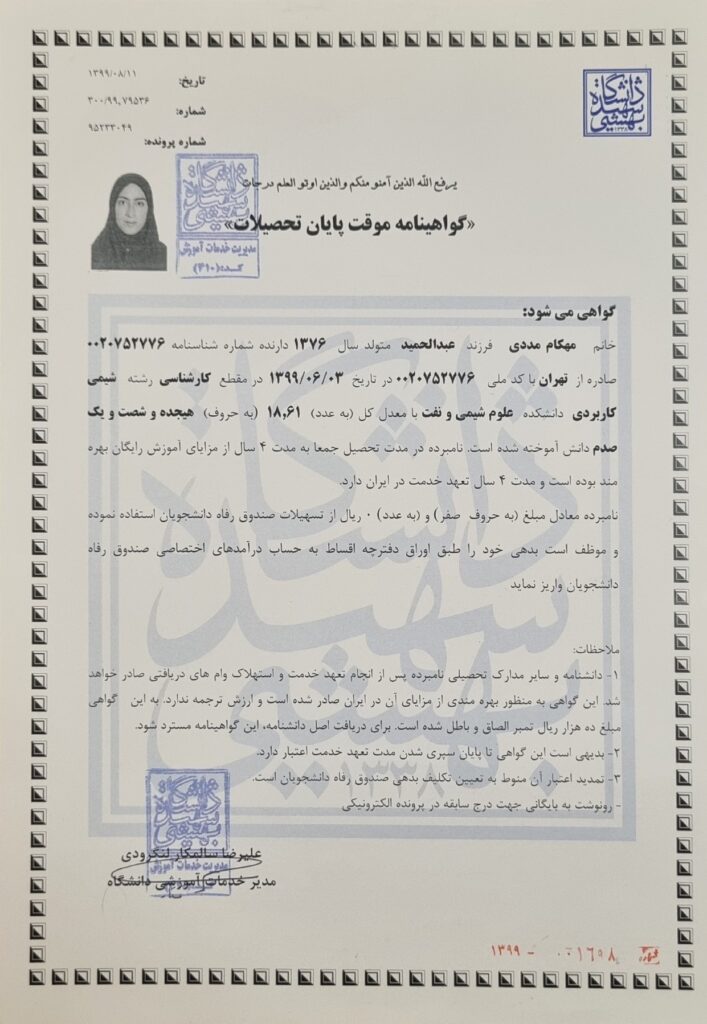 دانشگاه شهید بهشتی
۱۳۳۸
تاریخ: ۱۳۹۹/۰۸/۱۱
شماره: ۳۰۰/۹۹,۷۹۵۳۶
شماره پرونده: ۹۵۲۳۳۰۴۹
یرفع الله الذین آمنو منکم والذین اوتو العلم درجات
«گواهینامه موقت پایان تحصیلات»
دانشگاه شهید بهشتی
مدیریت خدمات آموزش
کد:(۳۱۰)
گواهی می شود:
خانم مهکام مددی فرزند عبدالحمید متولد سال ۱۳۷۶ دارنده شماره شناسنامه ۰۰۲۰۷۵۲۷۷۶
صادره از تهران با کد ملی ۰۰۲۰۷۵۲۷۷۶ در تاریخ ۱۳۹۹/۰۶/۰۳ در مقطع کارشناسی رشته شیمی
کاربردی دانشکده علوم شیمی و نفت با معدل کل (به عدد) ۱۸,۶۱ (به حروف) هیجده و شصت و یک
صدم دانش آموخته شده است. نامبرده در مدت تحصیل جمعا به مدت ۴ سال از مزایای آموزش رایگان بهره
مند بوده است و مدت ۴ سال تعهد خدمت در ایران دارد.
نامبرده معادل مبلغ (به حروف صفر) و (به عدد) ۰ ریال از تسهیلات صندوق رفاه دانشجویان استفاده نموده
و موظف است بدهی خود را طبق اوراق دفترچه اقساط به حساب درآمدهای اختصاصی صندوق رفاه
دانشجویان واریز نماید
ملاحظات:
۱- دانشنامه و سایر مدارک تحصیلی نامبرده پس از انجام تعهد خدمت و استهلاک وام های دریافتی صادر خواهد
شد. این گواهی به منظور بهره مندی از مزایای آن در ایران صادر شده است و ارزش ترجمه ندارد. به این گواهی
مبلغ ده هزار ریال تمبر الصاق و باطل شده است. برای دریافت اصل دانشنامه، این گواهینامه مسترد شود.
۲- بدیهی است این گواهی تا پایان سپری شدن مدت تعهد خدمت اعتبار دارد.
۳- تمدید اعتبار آن منوط به تعیین تکلیف بدهی صندوق رفاه دانشجویان است.
- رونوشت به بایگانی جهت درج سابقه در پرونده الکترونیکی
دانشگاه شهید بهشتی
مدیریت خدمات آموزش
علیرضا سالمکار لنگرودی
مدیر خدمات آموزشی دانشگاه
شماره ۰۰۱۶۵۸ - ۱۳۹۹